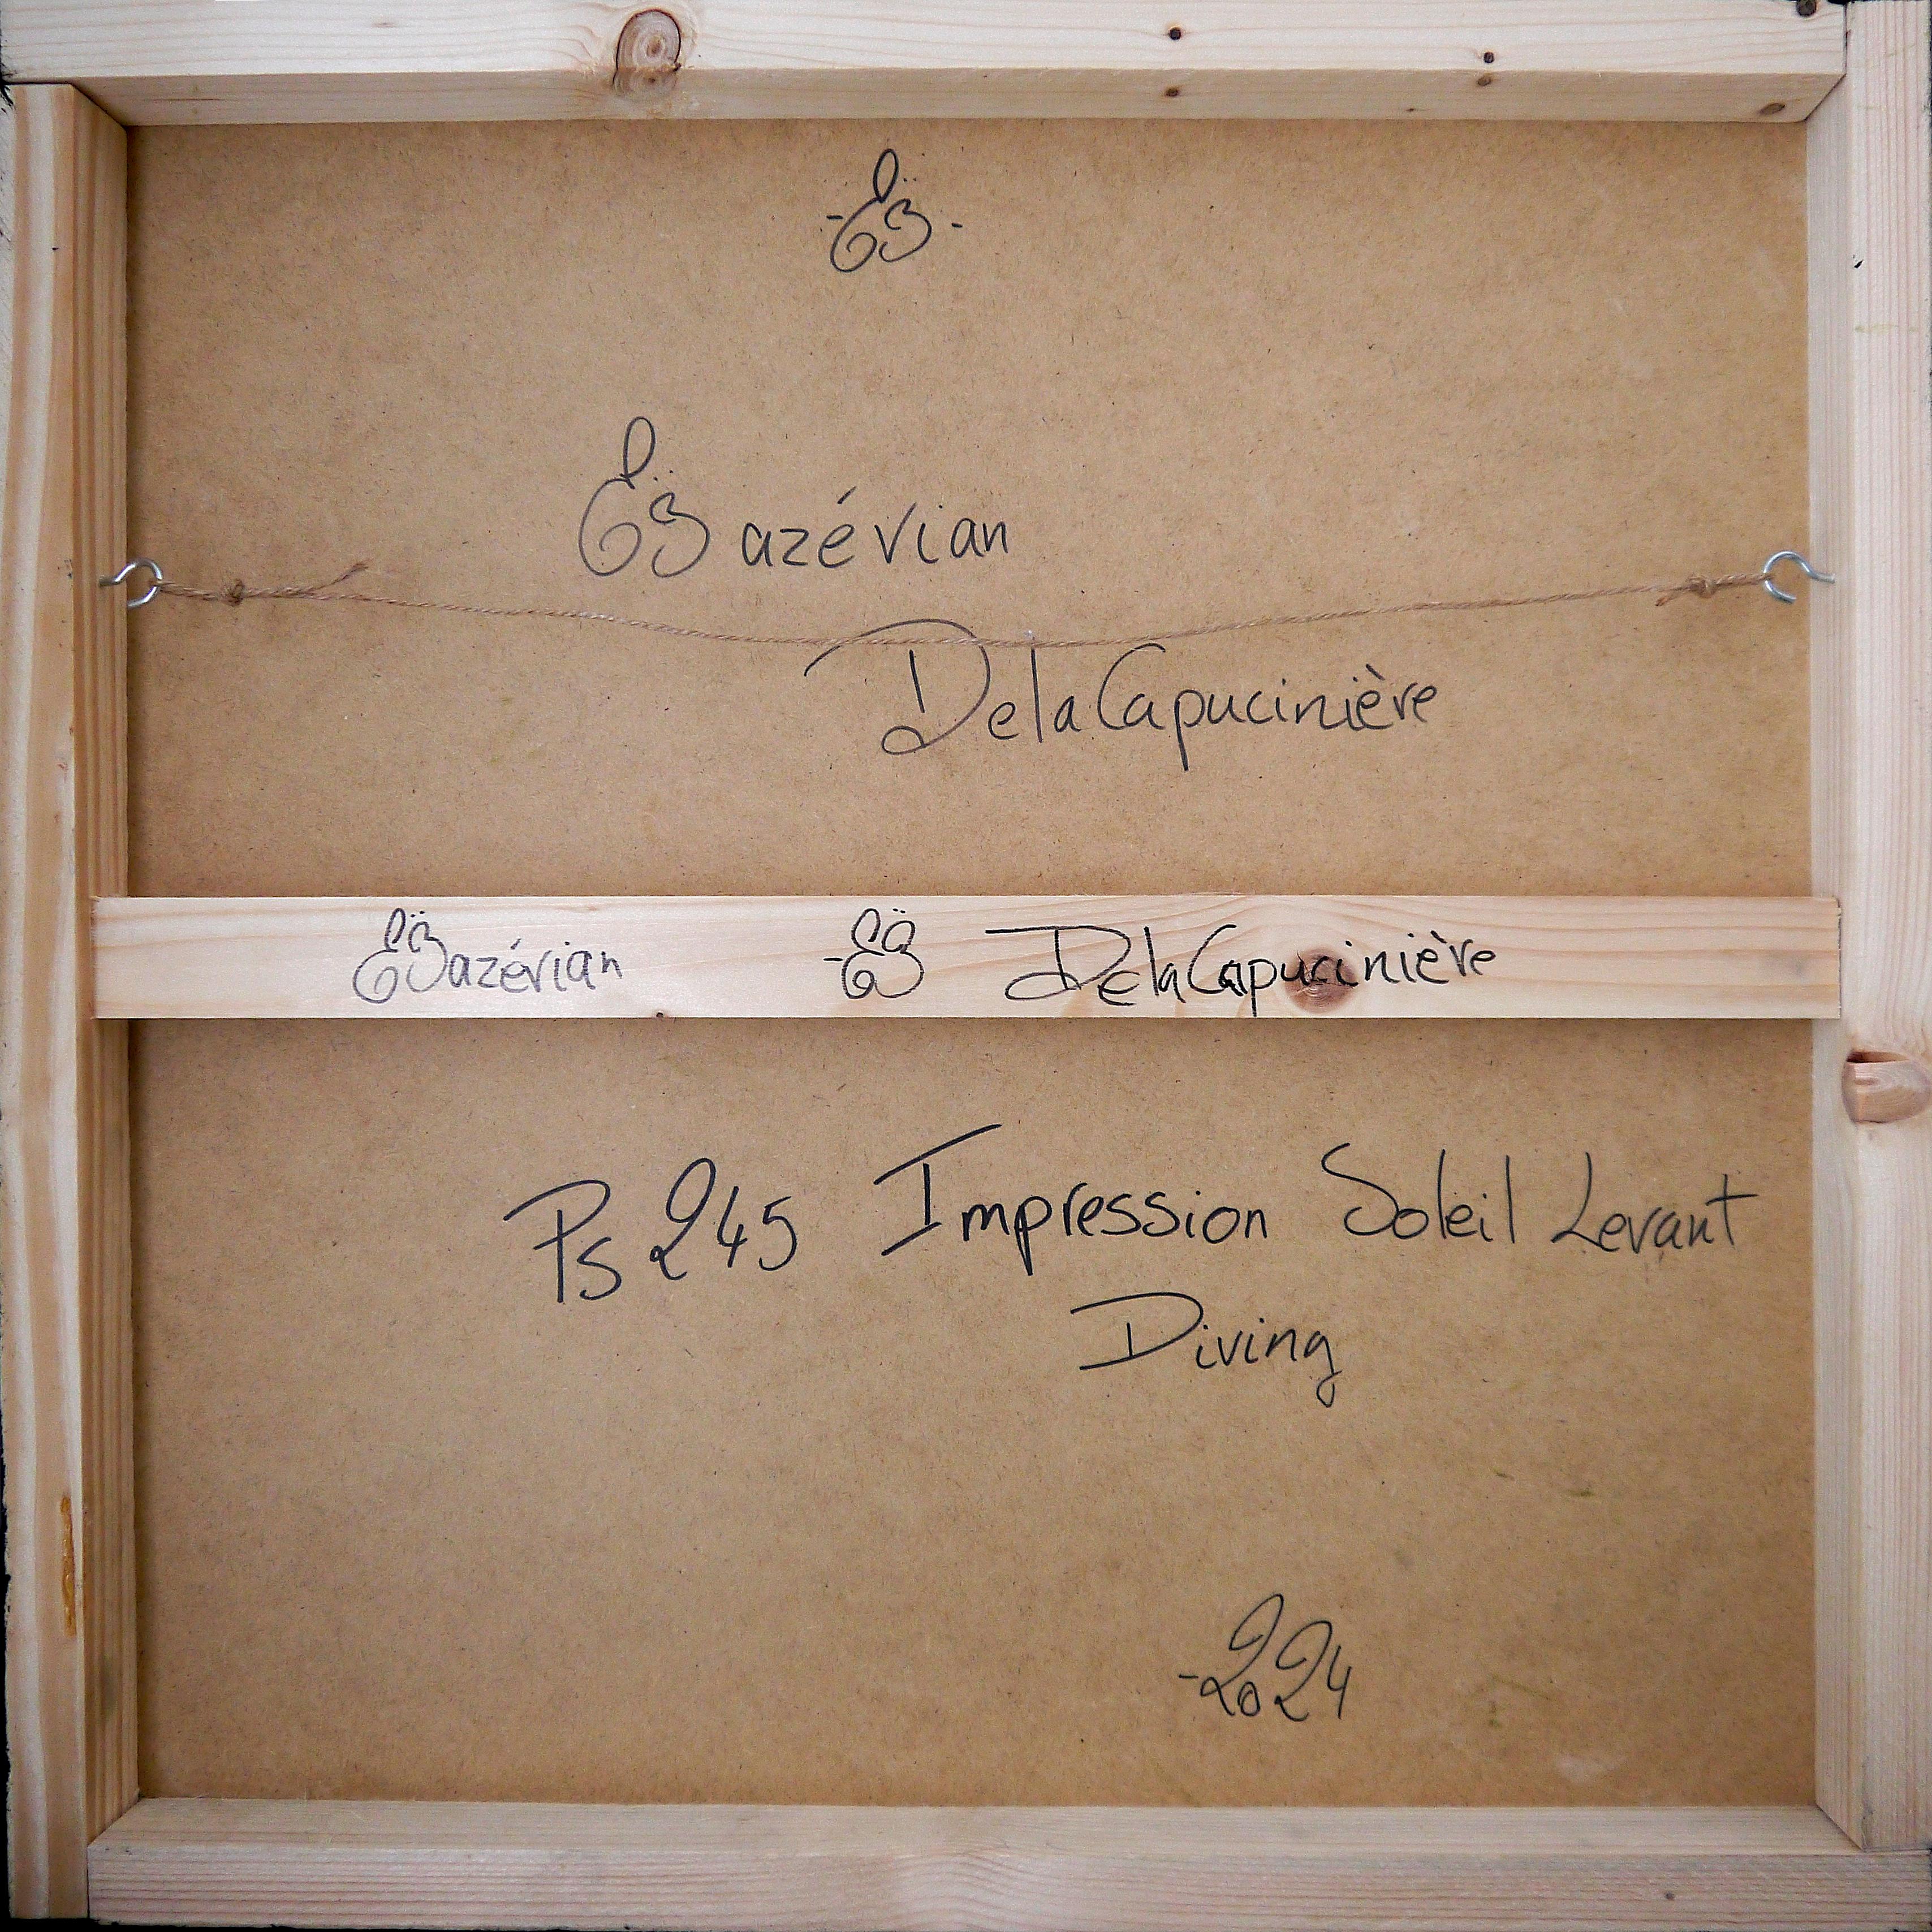 Bazévian
DelaCapucinière
Bazévian DelaCapucinière
Ps 245 Impression Soleil Levant
Diving
-2024